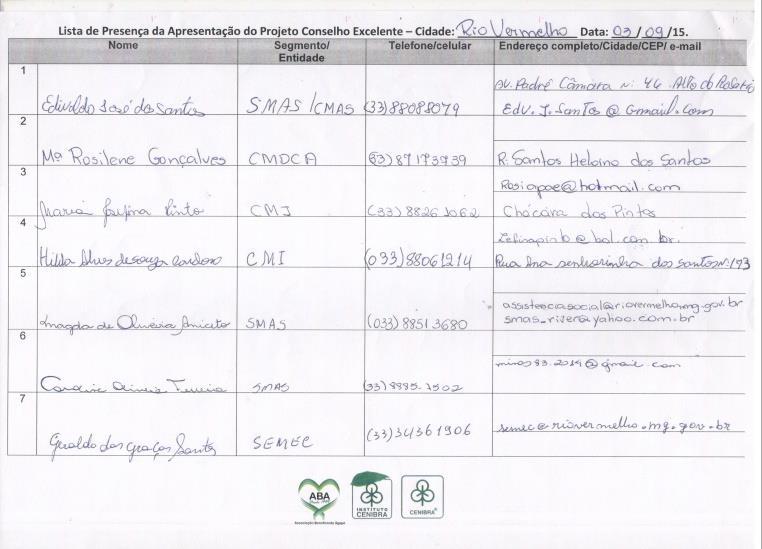 Lista de Presença da Apresentação do Projeto Conselho Excelente – Cidade: Rio Vermelho Data: 03 / 09 /15.
Nome Segmento/ Entidade Telefone/celular Endereço completo/Cidade/CEP/ e-mail
1
AV. Padré Câmara N: 44 Alto do Rosário
Edivaldo José dos Santos SMAS /CMAS (33)88088079 Edv. J. Santos @ Gmail.com
2
Mª Rosilene Gonçalves CMDCA (33)87173939 R. Santos Heloino dos Santos
3
Rosiapae@hotmail.com
Maria Josefina Pinto CMI (33) 8826 1062 Chácara dos Pintos
4
zefinapinto@bol.com.br.
Hilda Alves de Souza Cardoso CMI (033)88061214 Rua Ana senhorinha dos santos Nº: 193
5
assistenciasocial@riovermelho.mg.gov.br
smas_river@yahoo.com.br
Magda de Oliveira Aniceto SMAS (033) 88513680
6
minos83.2014@gmail.com
Oliveira SMAS (33) 8885-1502
7
Geraldo das Graças Santos SEMEC (33)34361906 semec@riovermelho.mg.gov.br
ABA
Associação Beneficente Ágape
INSTITUTO CENIBRA
CENIBRA